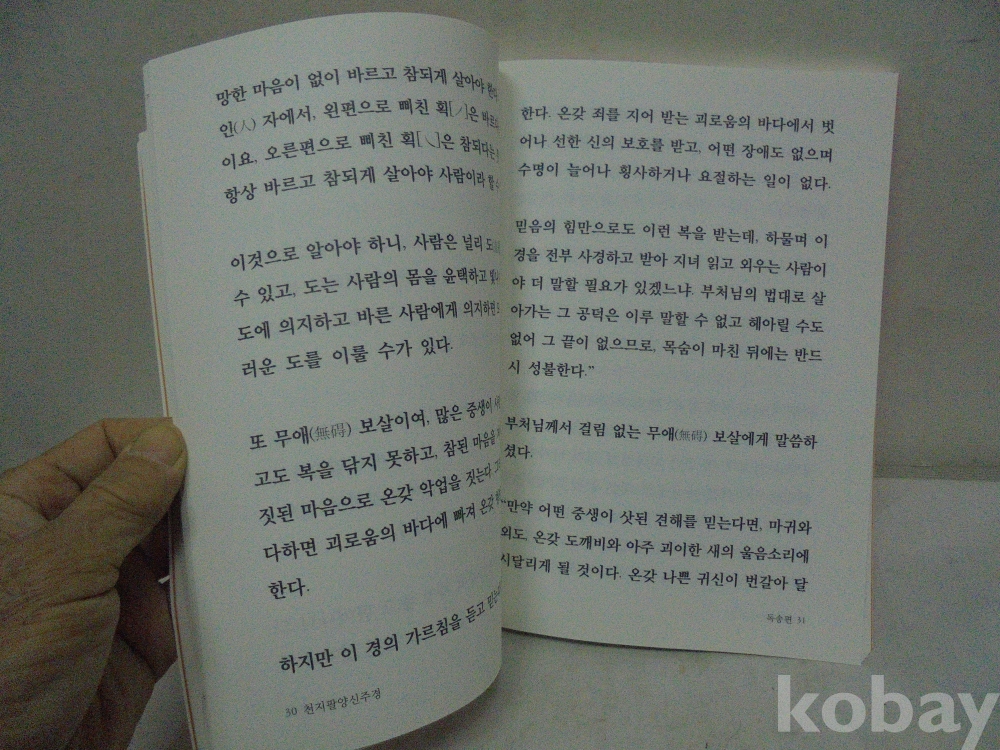 망한 마음이 없이 바르고 참되게 살아야
인(人) 자에서, 왼편으로 삐친 획[ノ]은
이요, 오른편으로 삐친 획[㇏]은 참되다는
항상 바르고 참되게 살아야 사람이라
이것으로 알아야 하니, 사람은 널리
수 있고, 도는 사람의 몸을 윤택하고
도에 의지하고 바른 사람에게 의지하면
러운 도를 이룰 수가 있다.
또 무애(無碍) 보살이여, 많은 중생이
고도 복을 닦지 못하고, 참된 마음을
짓된 마음으로 온갖 악업을 짓는다.
다하면 괴로움의 바다에 빠져 온갖
한다.
하지만 이 경의 가르침을 듣고
30 천지팔양신주경
한다. 온갖 죄를 지어 받는 괴로움의 바다에서 벗
어나 선한 신의 보호를 받고, 어떤 장애도 없으며
수명이 늘어나 횡사하거나 요절하는 일이 없다.
믿음의 힘만으로도 이런 복을 받는데, 하물며 이
경을 전부 사경하고 받아 지녀 읽고 외우는 사람이
야 더 말할 필요가 있겠느냐. 부처님의 법대로 살
아가는 그 공덕은 이루 말할 수 없고 헤아릴 수도
없어 그 끝이 없으므로, 목숨이 마친 뒤에는 반드
시 성불한다.”
부처님께서 걸림 없는 무애(無碍) 보살에게 말씀하
셨다.
“만약 어떤 중생이 삿된 견해를 믿는다면, 마귀와
외도, 온갖 도깨비와 아주 괴이한 새의 울음소리에
시달리게 될 것이다. 온갖 나쁜 귀신이 번갈아 달
독송편 31
kobay